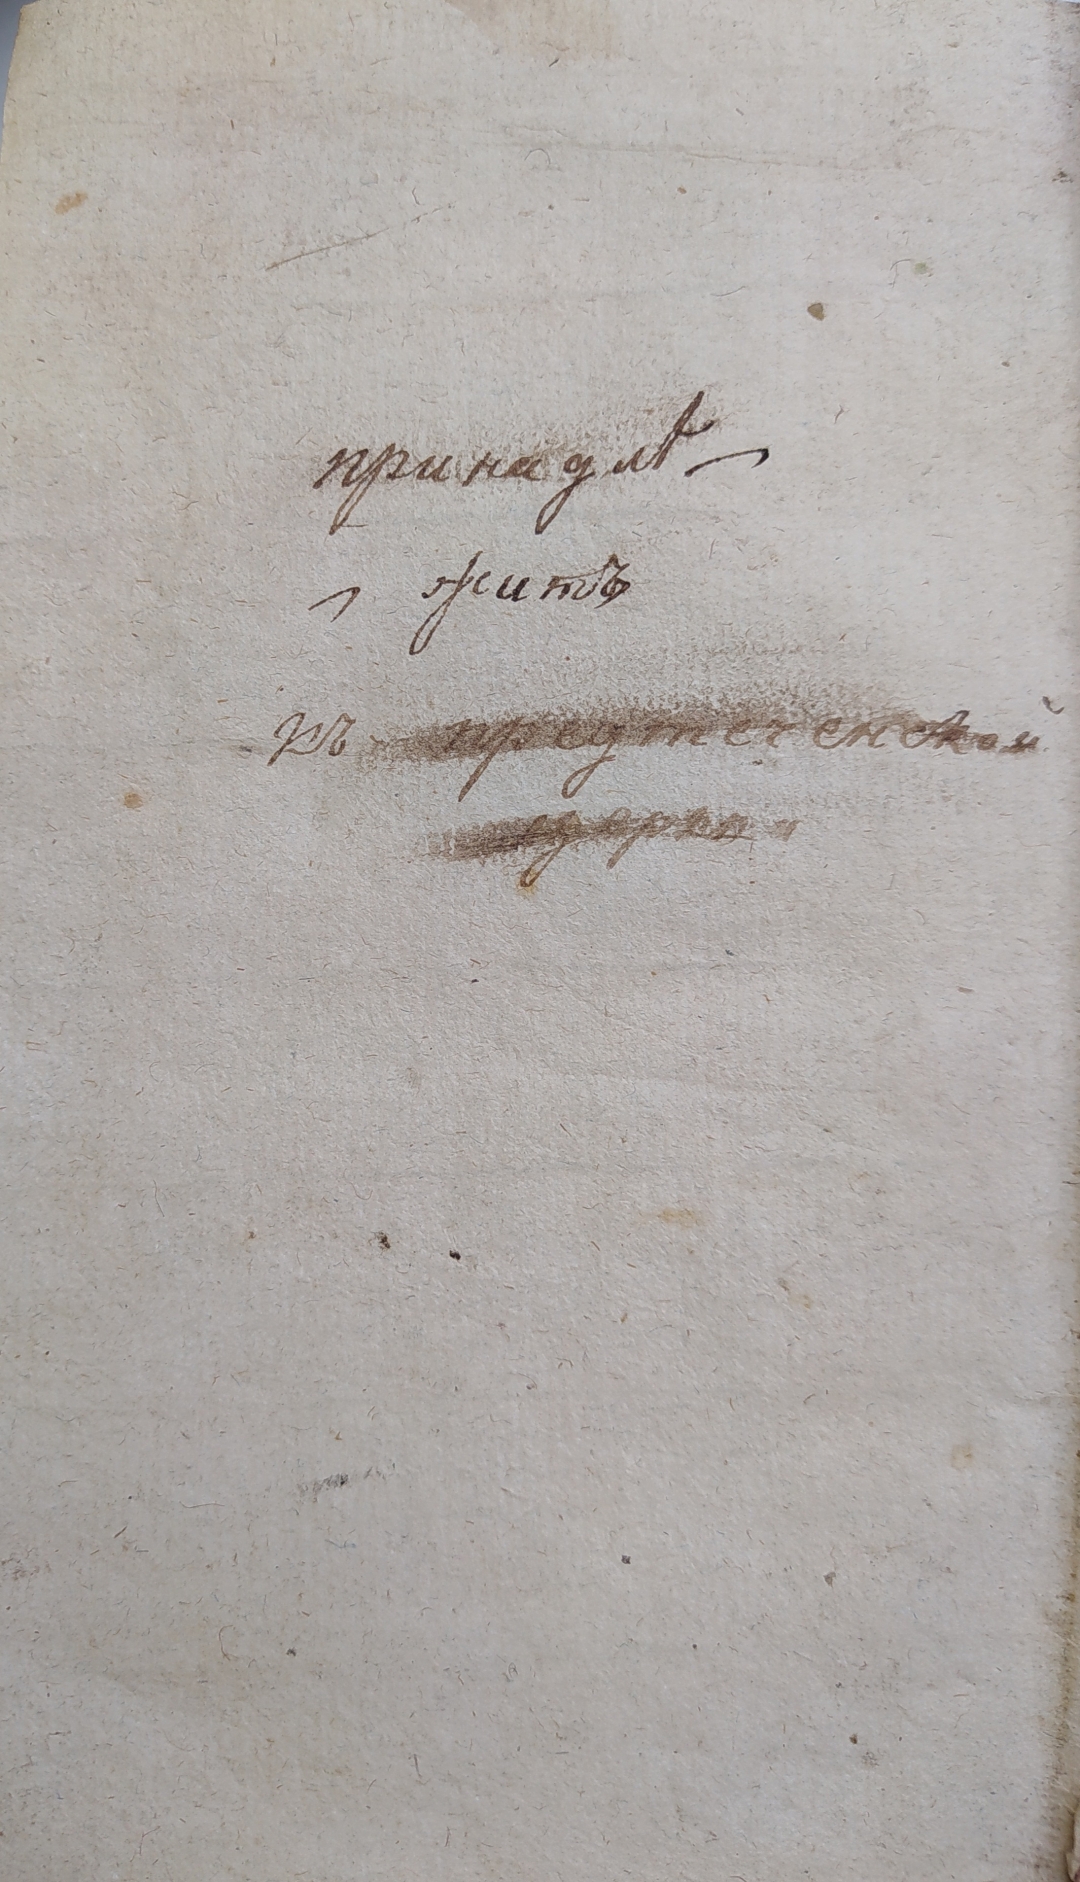 принадлѣ-
- житъ
къ предтеченской
церкви